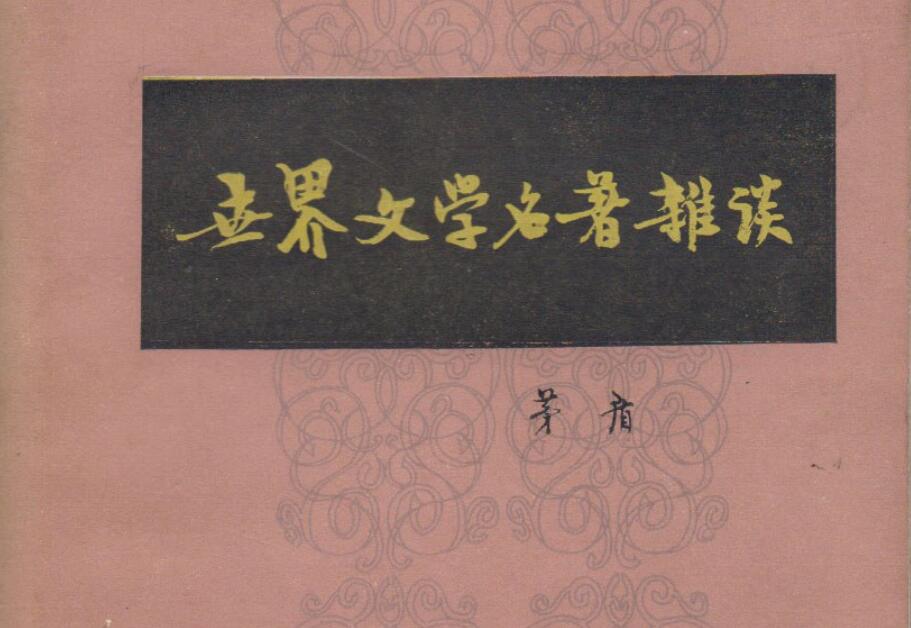 世界文学名著雜谈
茅盾